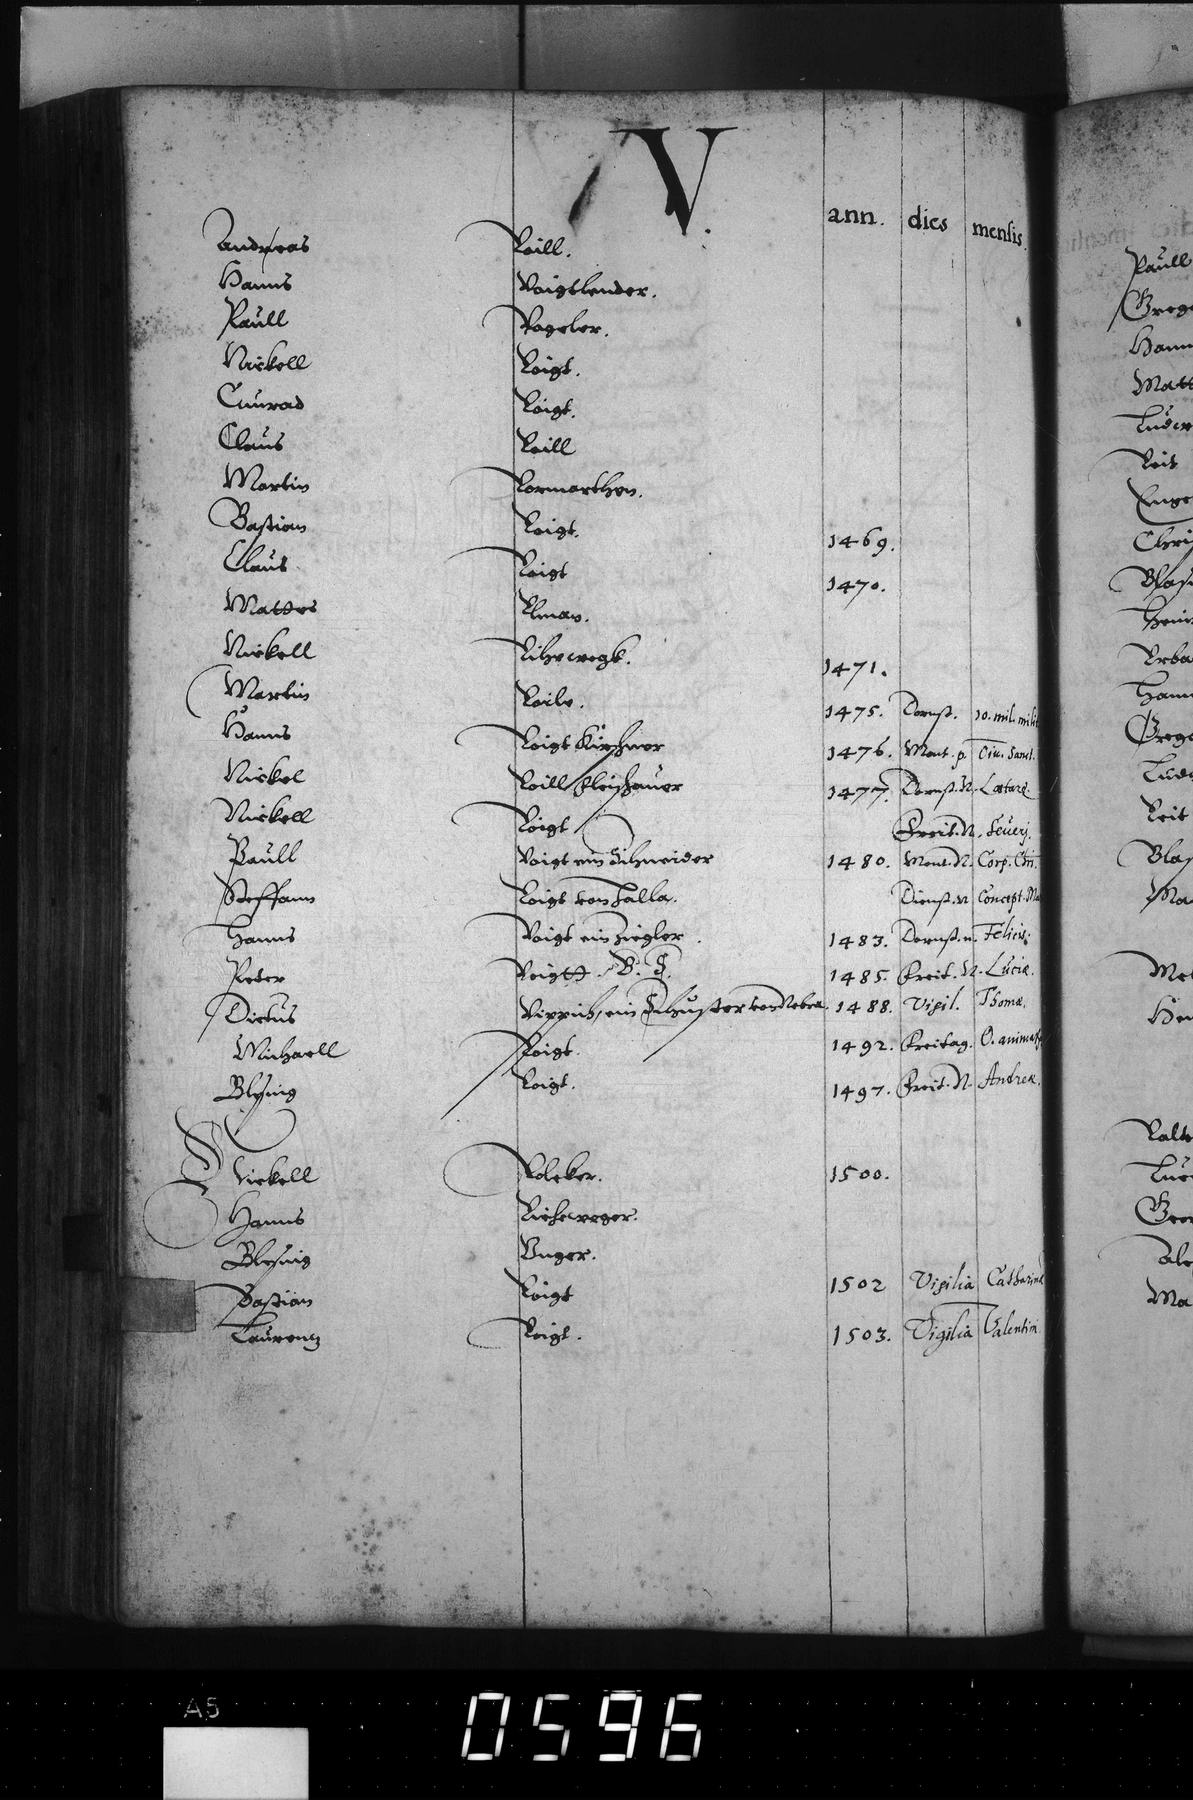 V.
ann. dies mensis.
Andreas Voill.
Hanns Voigtlender.
Paull Vogeler.
Nickell Voigt.
Cunrad Voigt.
Claus Voill
Martin Vormarthen.
Bastian Voigt. 1469.
Claus Voigt 1470.
Mattes Ulman.
Nickell Vihewegk. 1471.
Martin Voile. 1475. Dornst. 10. mil. milit
Hanns Voigt Kirschner 1476. Mont. p. Om. Sanct.
Nickel Voill fleischauer 1477. Dornst. N. Lætare
Nickell Voigt Freit. N. Seuerj.
Paull Voigt ein Schneider 1480. Mont. N. Corp. Chri.
Steffann Voigt von Halla. Dienst. N Concept. Ma
Hanns Voigt ein Ziegler. 1483. Dornst. n. Felicis.
Peter Voigtt. B. S. 1485. Freit. N. Luciæ.
Dictus Vippich, ein Schuster von Nebra. 1488. Vigil. Thomæ.
Michaell Voigt. 1492. Freitag. O. animar
Blesing Voigt. 1497. Freit. N. Andreæ.
Nickell Volcker. 1500.
Hanns Vieheweger.
Blesing Unger.
Bastian Voigt 1502 Vigilia Catharinæ
Laurentz Voigt. 1503. Vigilia Valentini
Paull
Grego
Hann
Matt
Ludw
Veit
Chri
Blas
Urba
Hann
Grego
Ludw
Veit
Blas
Ma
Valt
Geor
Ma
A5
0596